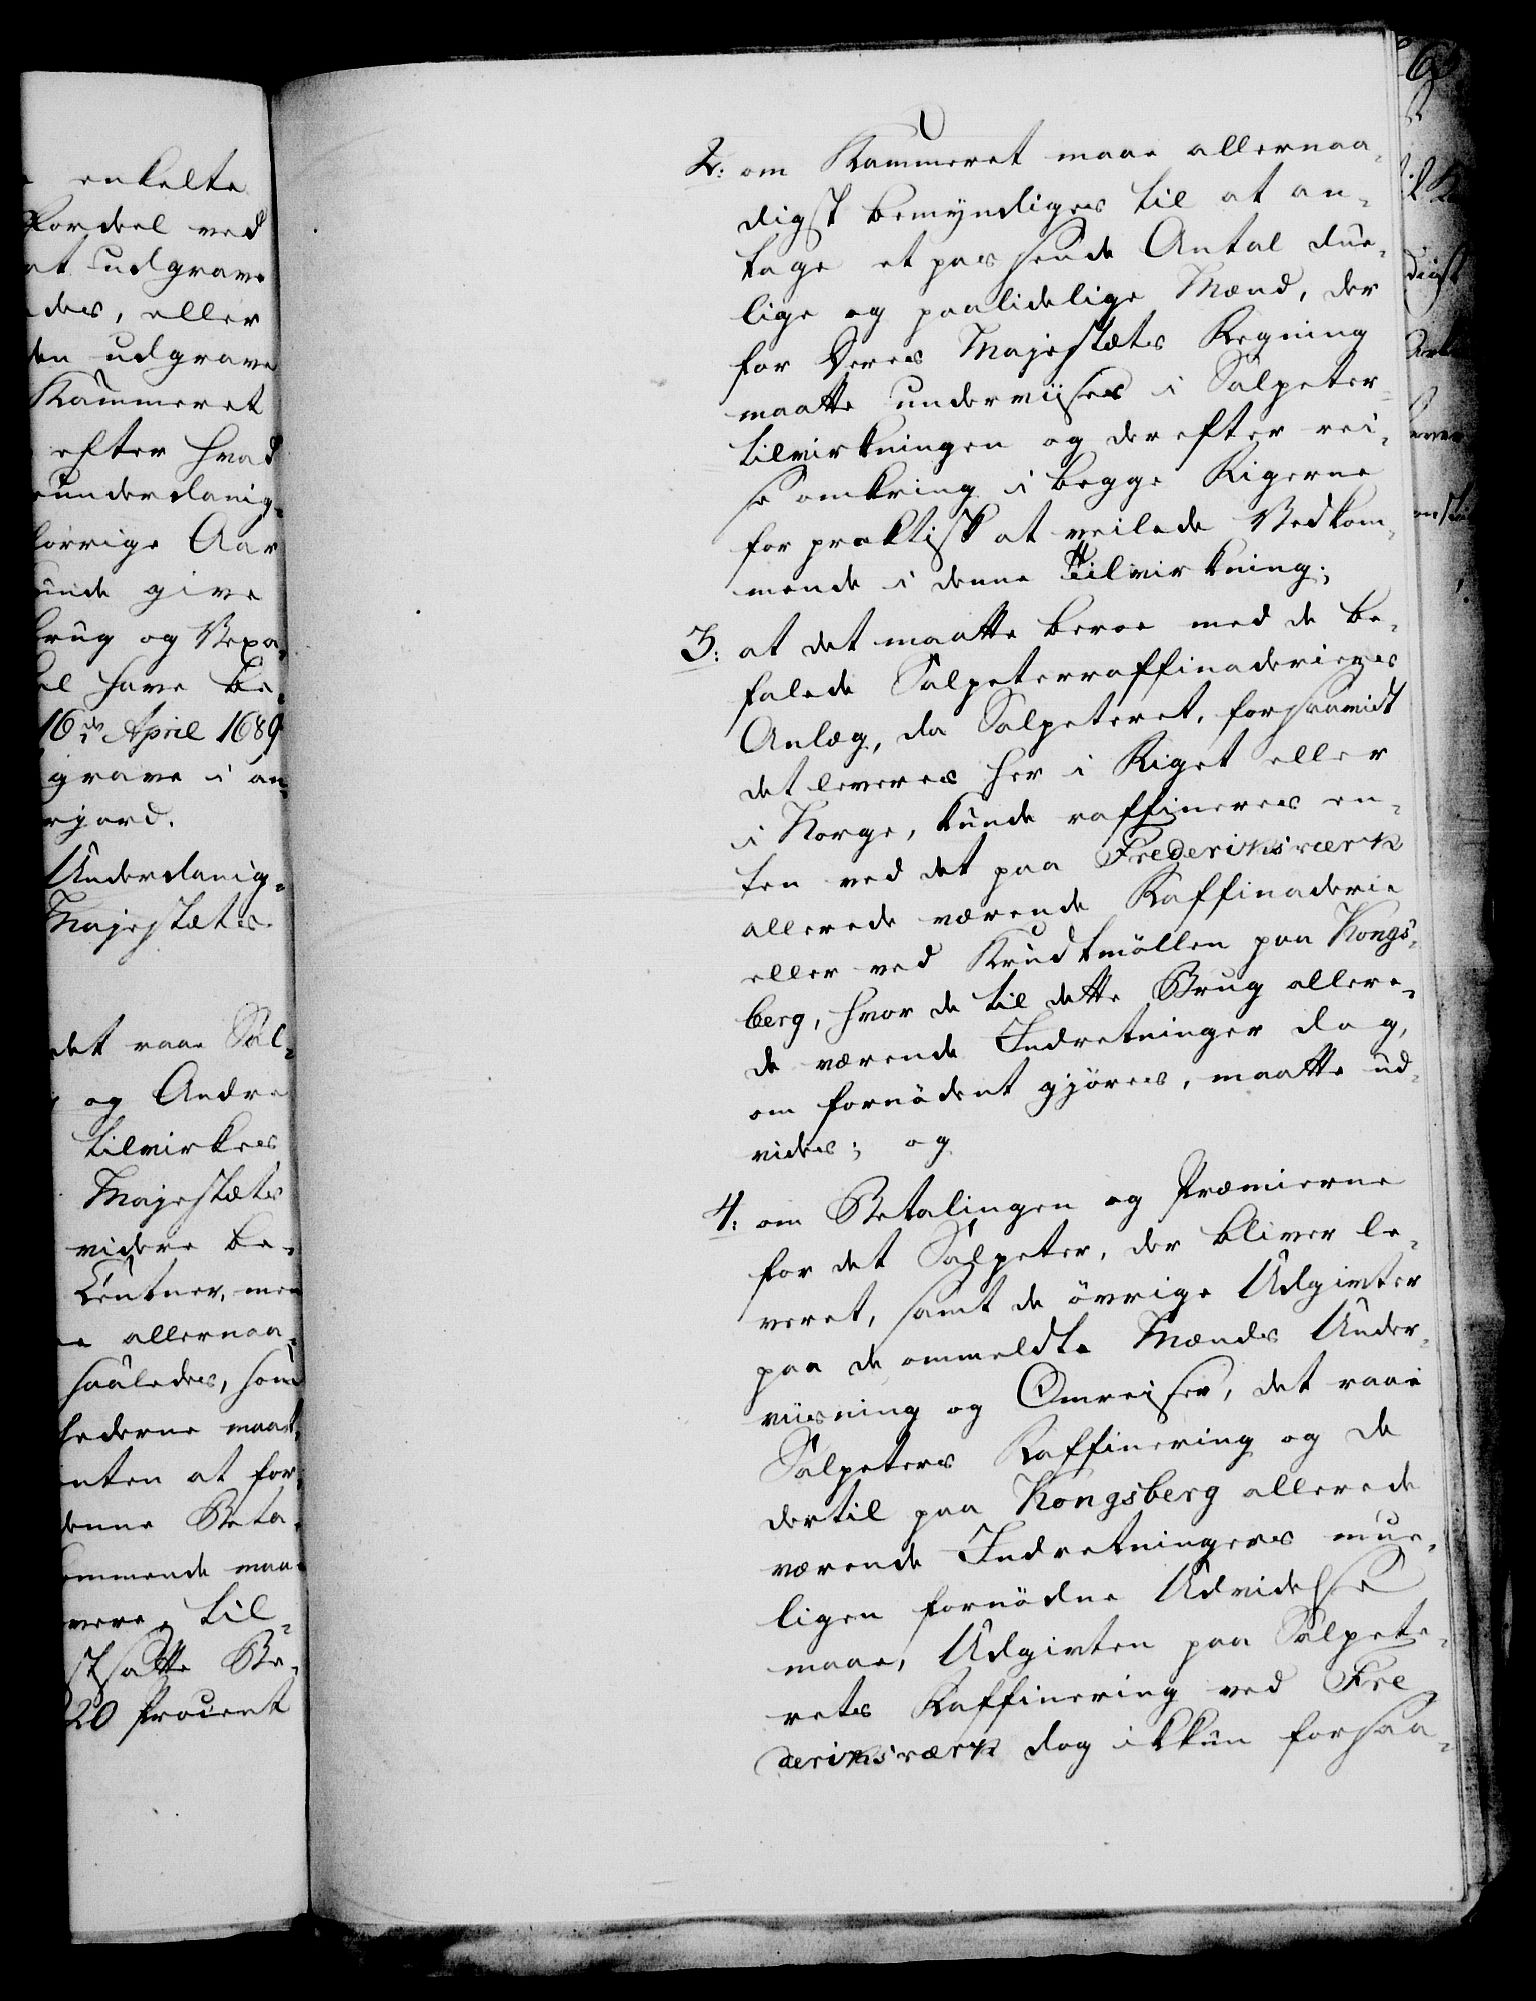 enkelte
Fordeel ved
at udgrave
des, eller
den udgrave
Kammeret
efter hvad
underdanig-
forrige Aar
unde give
brug og Vexa-
el have be-
16de April 1689
grave i an-
rjord.
Underdanig-
Majestæts
det raae Sal-
og Andre
tilvirkes
Majestæts
videre be-
Centner, men
allernaa-
saaledes, som
hederne maat-
enten at for-
denne Beta-
ommende maa-
vere, til-
stsatte Be-
20 Procent
2: om Kammeret maae allernaa-
digst bemyndiges til at an-
tage et passende Antal due-
lige og paalidelige Mænd, der
for Deres Majestæts Regning
maatte underviises i Salpeter-
tilvirkningen og derefter rei-
se omkring i begge Rigerne
for praktisk at veilede Vedkom-
mende i denne Tilvirkning;
3: at det maatte beroe med de be-
falede Salpeterraffinaderiers
Anlæg, da Salpeteret, forsaavidt
det leveres her i Riget eller
i Norge, kunde raffineres en-
ten ved det paa Frederiksværk
allerede værende Raffinaderie
eller ved Krudtmöllen paa Kongs-
berg, hvor de til dette Brug allere-
de værende Indretninger dog,
om fornödent gjöres, maatte ud-
vides; og
4: om Betalingen og Præmierne
for det Salpeter, der bliver le-
veret, samt de övrige Udgivter
paa de ommeldte Mænds Under-
viisning og Omreiser, det raae
Salpeters Raffinering og de
dertil paa Kongsberg allerede
værende Indretningers mue-
ligen fornödne Udvidelse
maae, Udgivten paa Salpete-
rets Raffinering ved Fre
deriksværk dog ikkun forsaa-